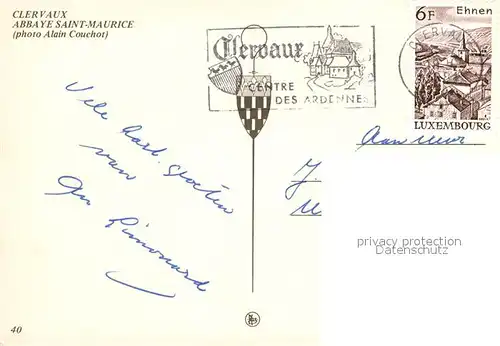 CLERVAUX
ABBAYE SAINT-MAURICE
(photo Alain Couchot)
Clervaux
CENTRE
DES ARDENNES
6F Ehnen
CLERVAUX
LUXEMBOURG
Aan
Vele hart. groeten
van
An
privacy protection
Datenschutz
40